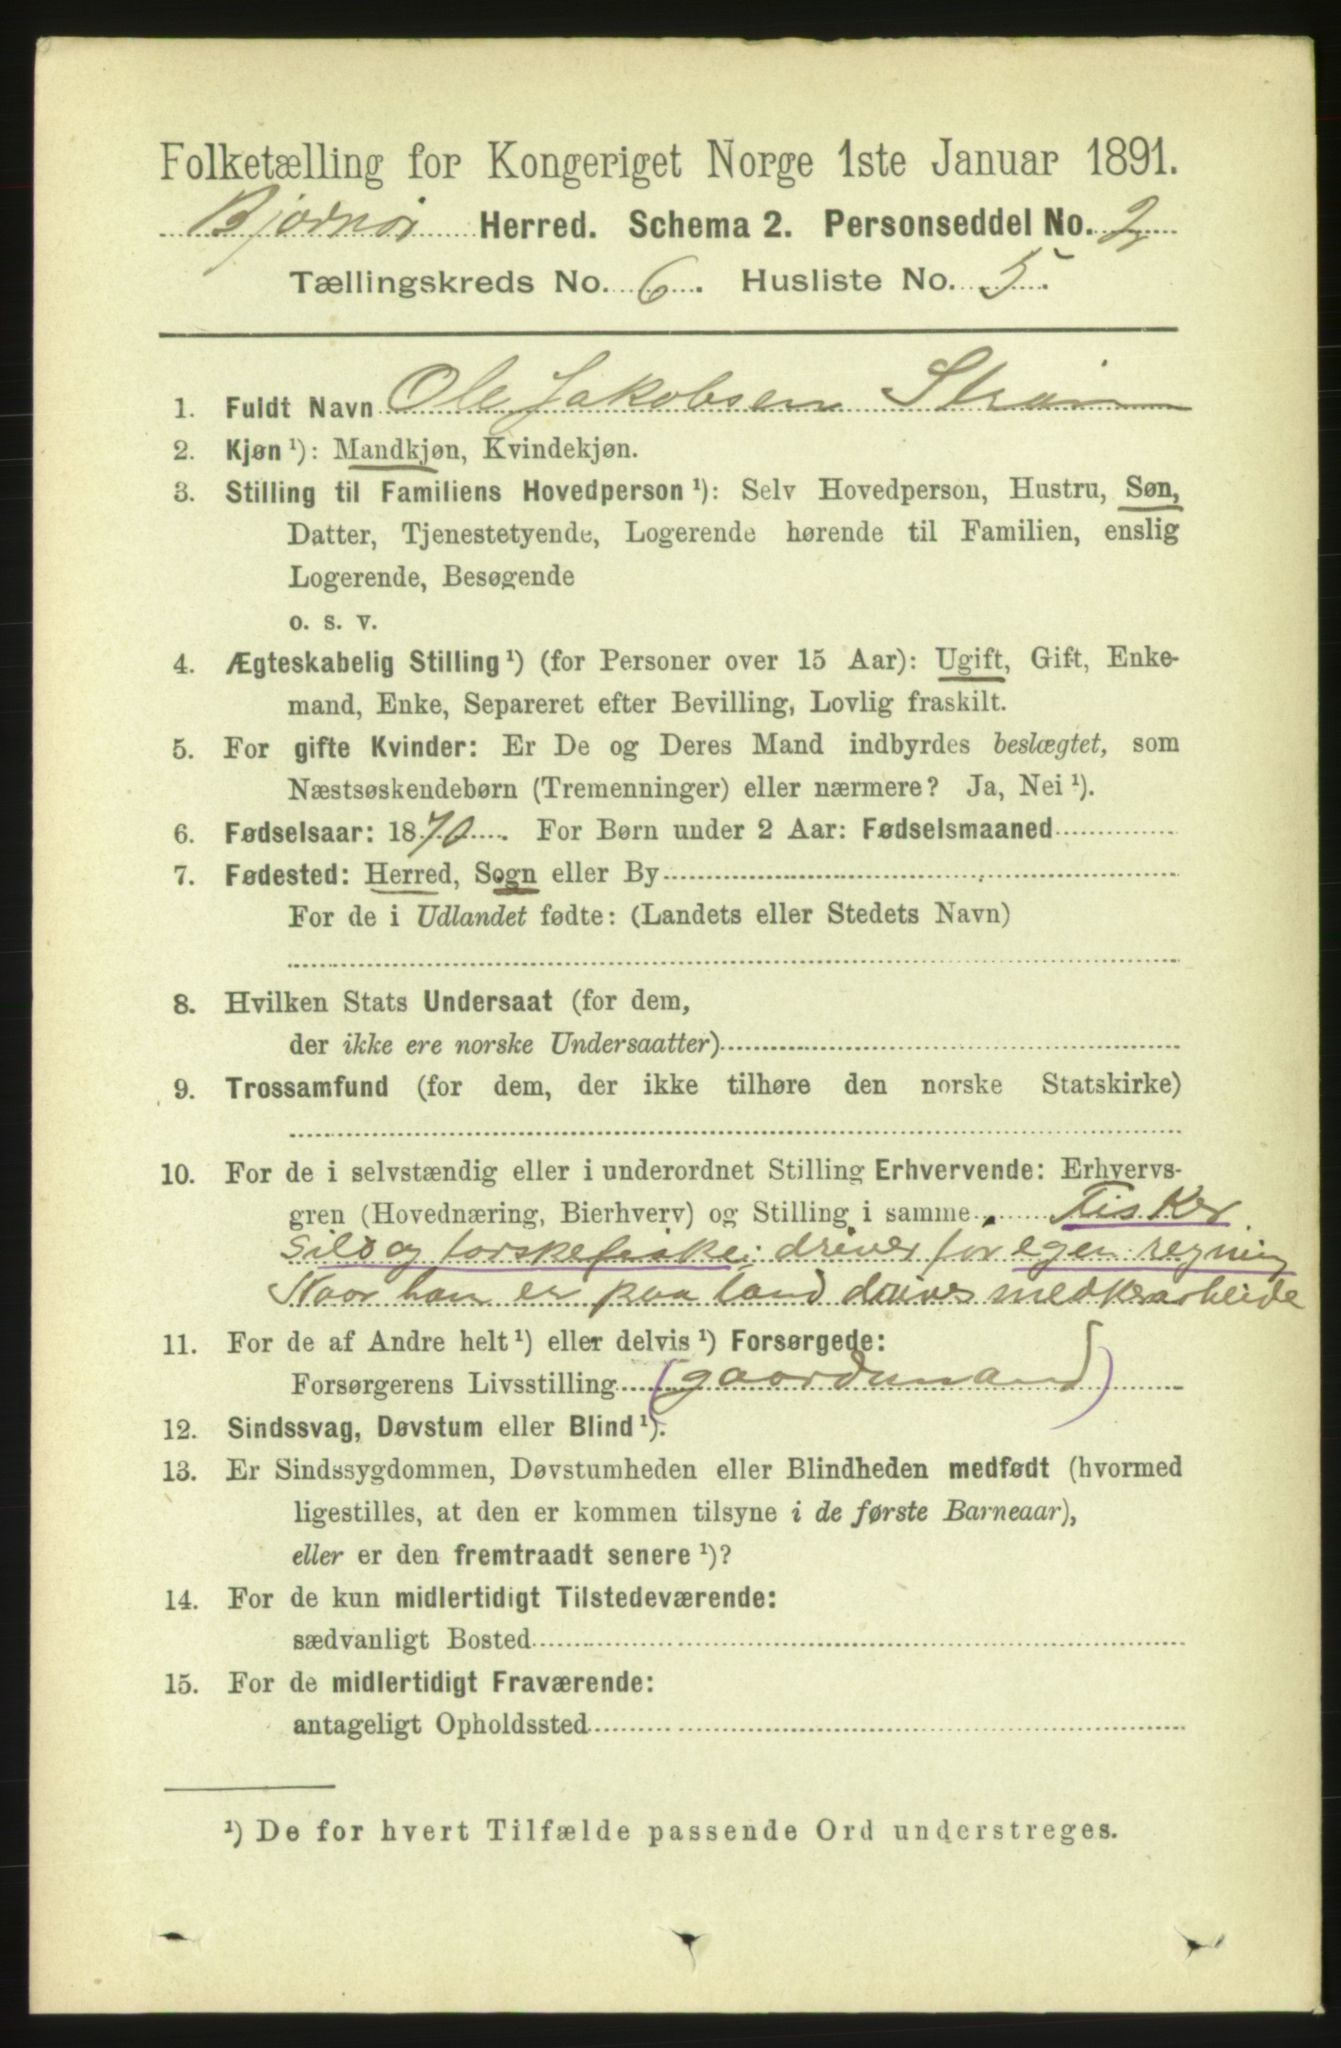 Folketælling for Kongeriget Norge 1ste Januar 1891.
Bjørnør Herred. Schema 2. Personseddel No. 2
Tællingskreds No. 6. Husliste No. 5.
1. Fuldt Navn Ole Jakobsen
2. Kjøn¹): Mandkjøn, Kvindekjøn.
3. Stilling til Familiens Hovedperson¹): Selv Hovedperson, Hustru, Søn,
Datter, Tjenestetyende, Logerende hørende til Familien, enslig
Logerende, Besøgende
o. s. v.
4. Ægteskabelig Stilling¹) (for Personer over 15 Aar): Ugift, Gift, Enke-
mand, Enke, Separeret efter Bevilling, Lovlig fraskilt.
5. For gifte Kvinder: Er De og Deres Mand indbyrdes beslægtet, som
Næstsøskendebørn (Tremenninger) eller nærmere? Ja, Nei¹).
6. Fødselsaar: 1870. For Børn under 2 Aar: Fødselsmaaned
7. Fødested: Herred, Sogn eller By
For de i Udlandet fødte: (Landets eller Stedets Navn)
8. Hvilken Stats Undersaat (for dem,
der ikke ere norske Undersaatter)
9. Trossamfund (for dem, der ikke tilhøre den norske Statskirke)
10. For de i selvstændig eller i underordnet Stilling Erhvervende: Erhvervs-
gren (Hovednæring, Bierhverv) og Stilling i samme Fisker
Sild og torskefiske; driver for egen regning
Naar han er paa land drives
11. For de af Andre helt¹) eller delvis¹) Forsørgede:
Forsørgerens Livsstilling (gaardmand)
12. Sindssvag, Døvstum eller Blind¹).
13. Er Sindssygdommen, Døvstumheden eller Blindheden medfødt (hvormed
ligestilles, at den er kommen tilsyne i de første Barneaar),
eller er den fremtraadt senere¹)?
14. For de kun midlertidigt Tilstedeværende:
sædvanligt Bosted
15. For de midlertidigt Fraværende:
antageligt Opholdssted
¹) De for hvert Tilfælde passende Ord understreges.